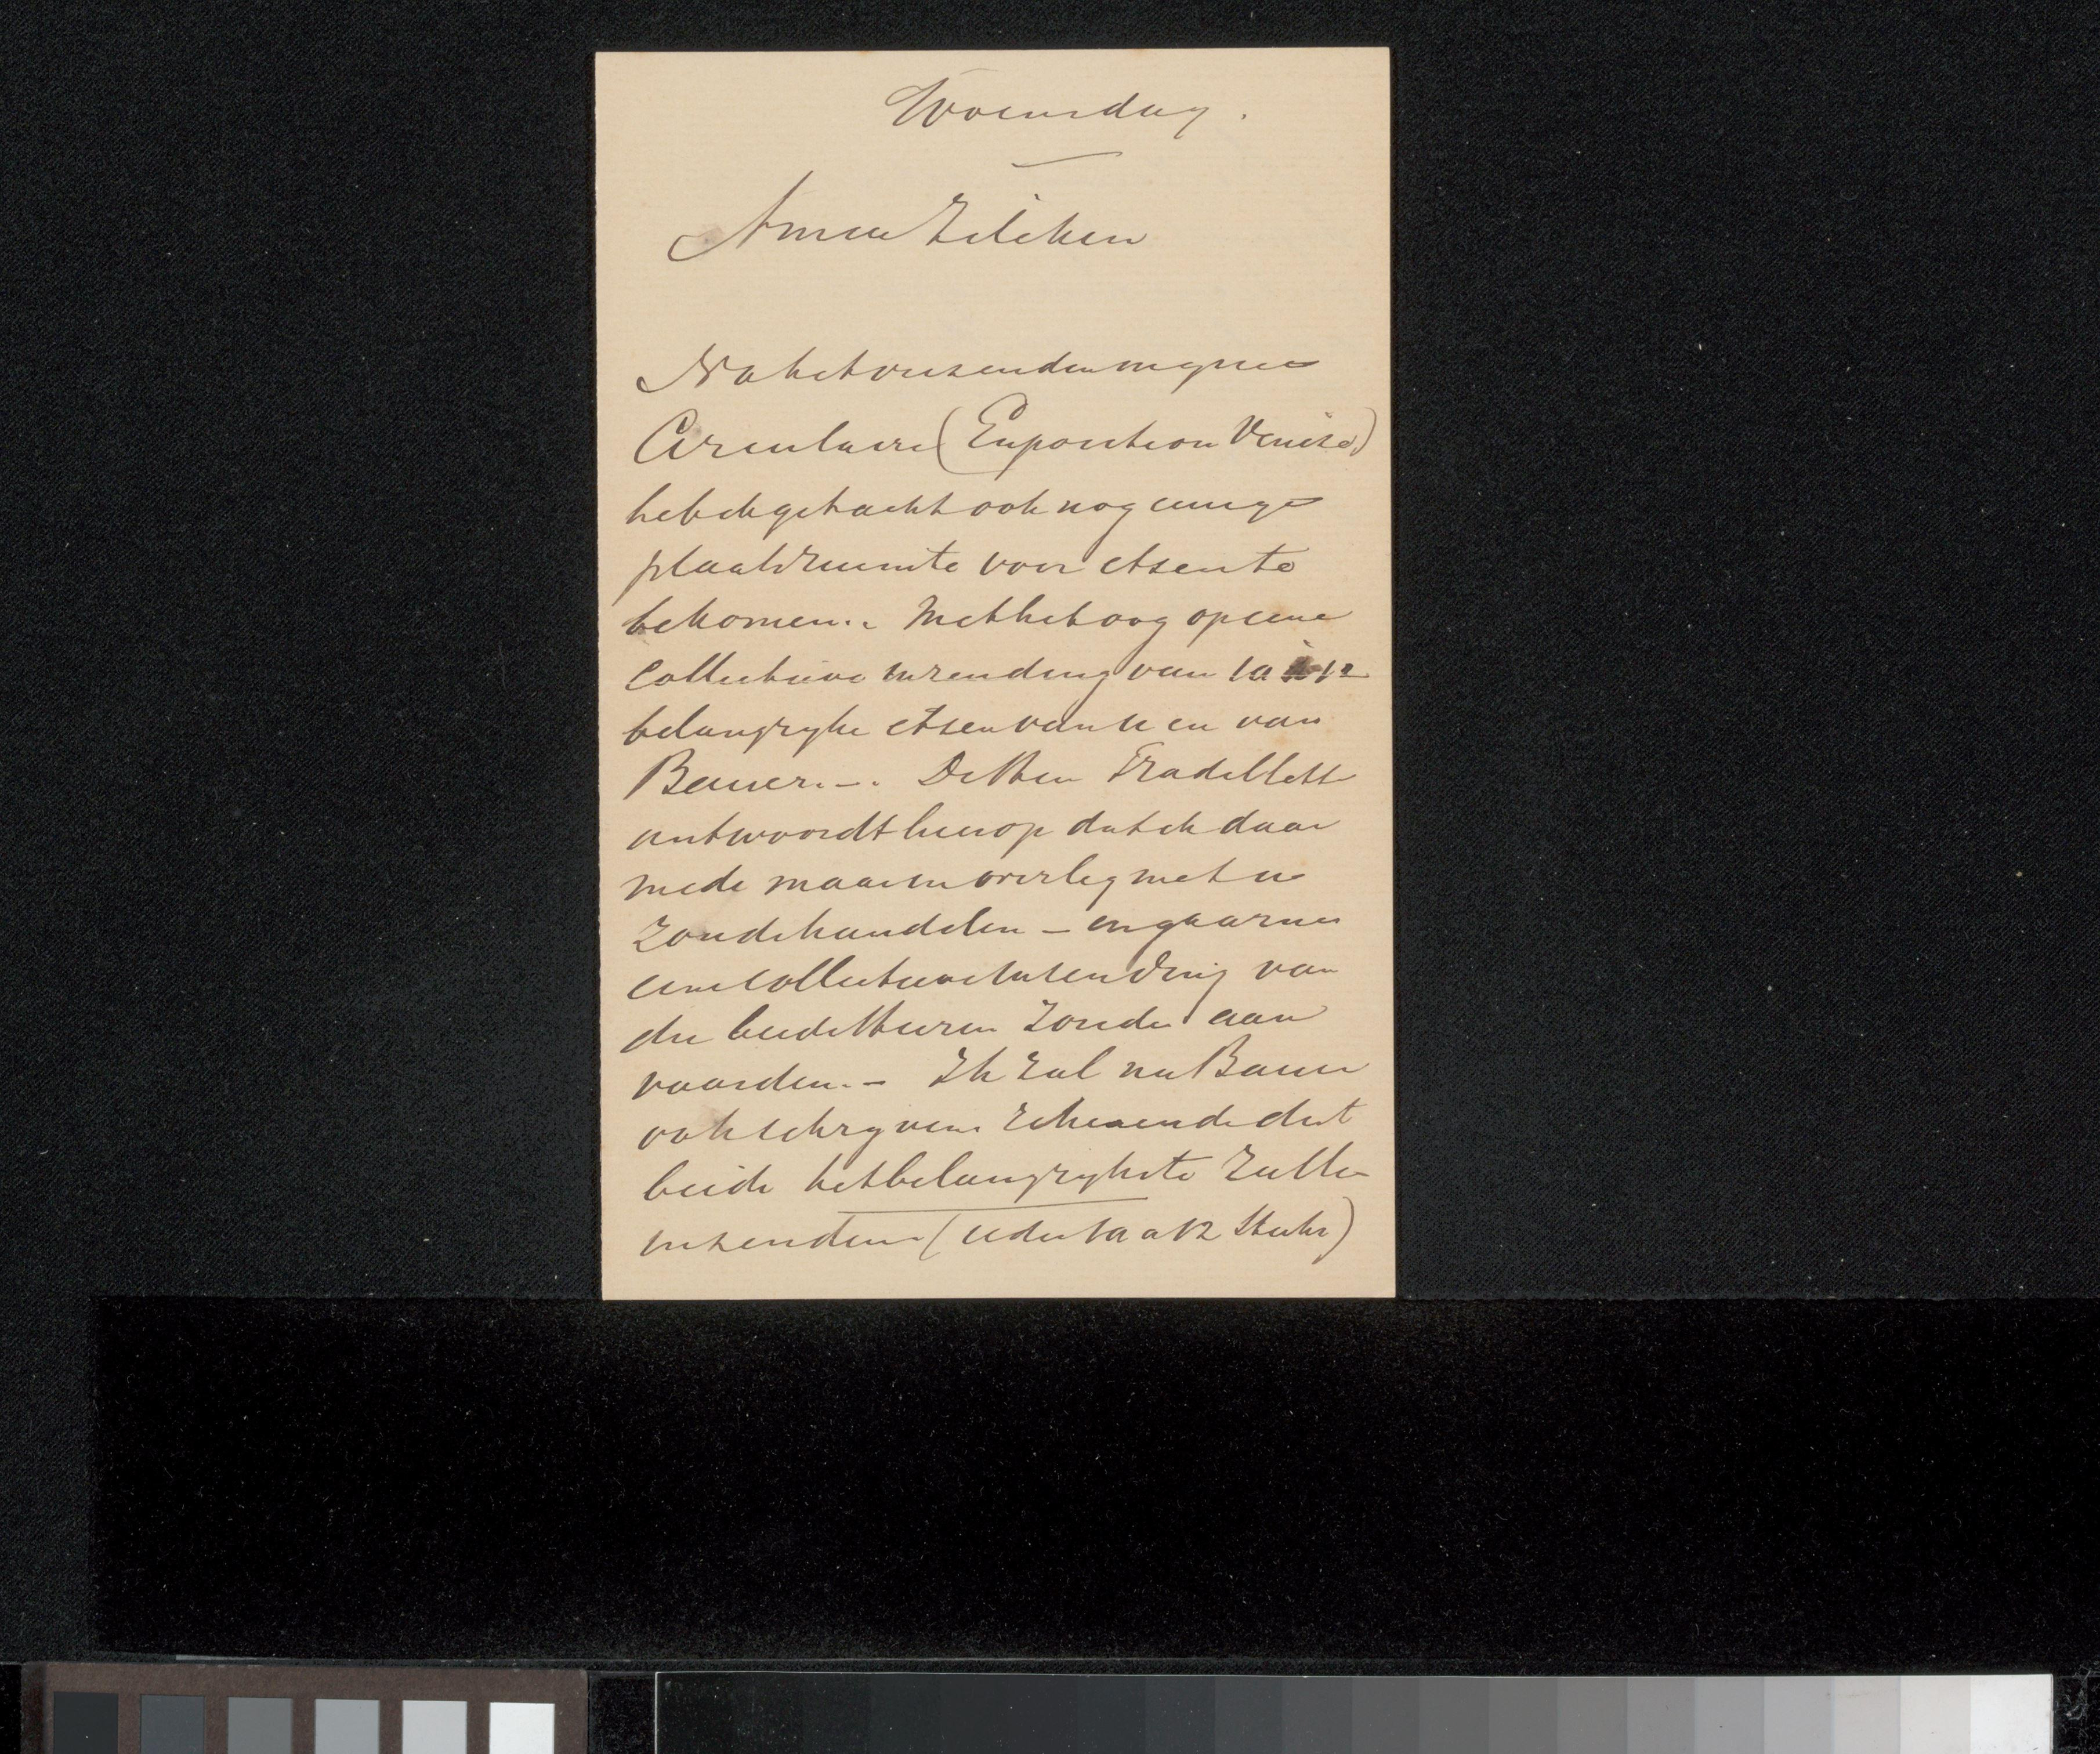 Woensdag.
Amice Zilcken
Na het verzenden mijner
Circulaire (Exposition Venise)
heb ik getracht ook nog eenige
plaatsruimte voor etsen te
bekomen.. Met het oog op eene
Collectieve inzending van 10 à 12
belangrijke etsen van u en van
Bauer. -. De Heer Fradeletto
antwoordt hierop dat ik daar
mede maar in overleg met u
zoude handelen - en gaarne
eene collectieve inzending van
die beide Heeren zoude aan
vaarden. - Ik zal nu Bauer
ook schrijven. rekenende dat
beide het belangrijkste zullen
inzenden (ieder 10 a 12 Stuks)